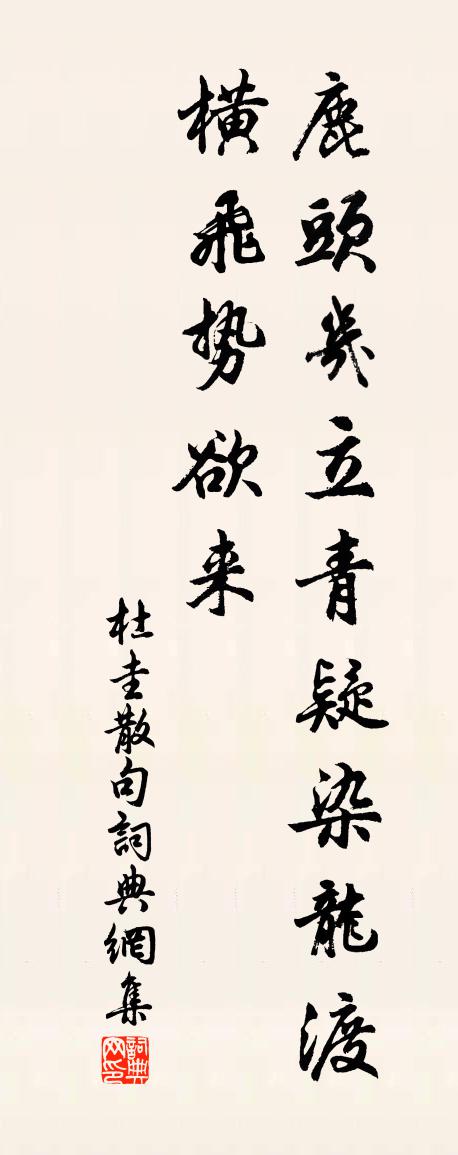 鹿頭幾立青疑染龍渡
橫飛勢欲来
杜圭散句詞典網集
詞典網印